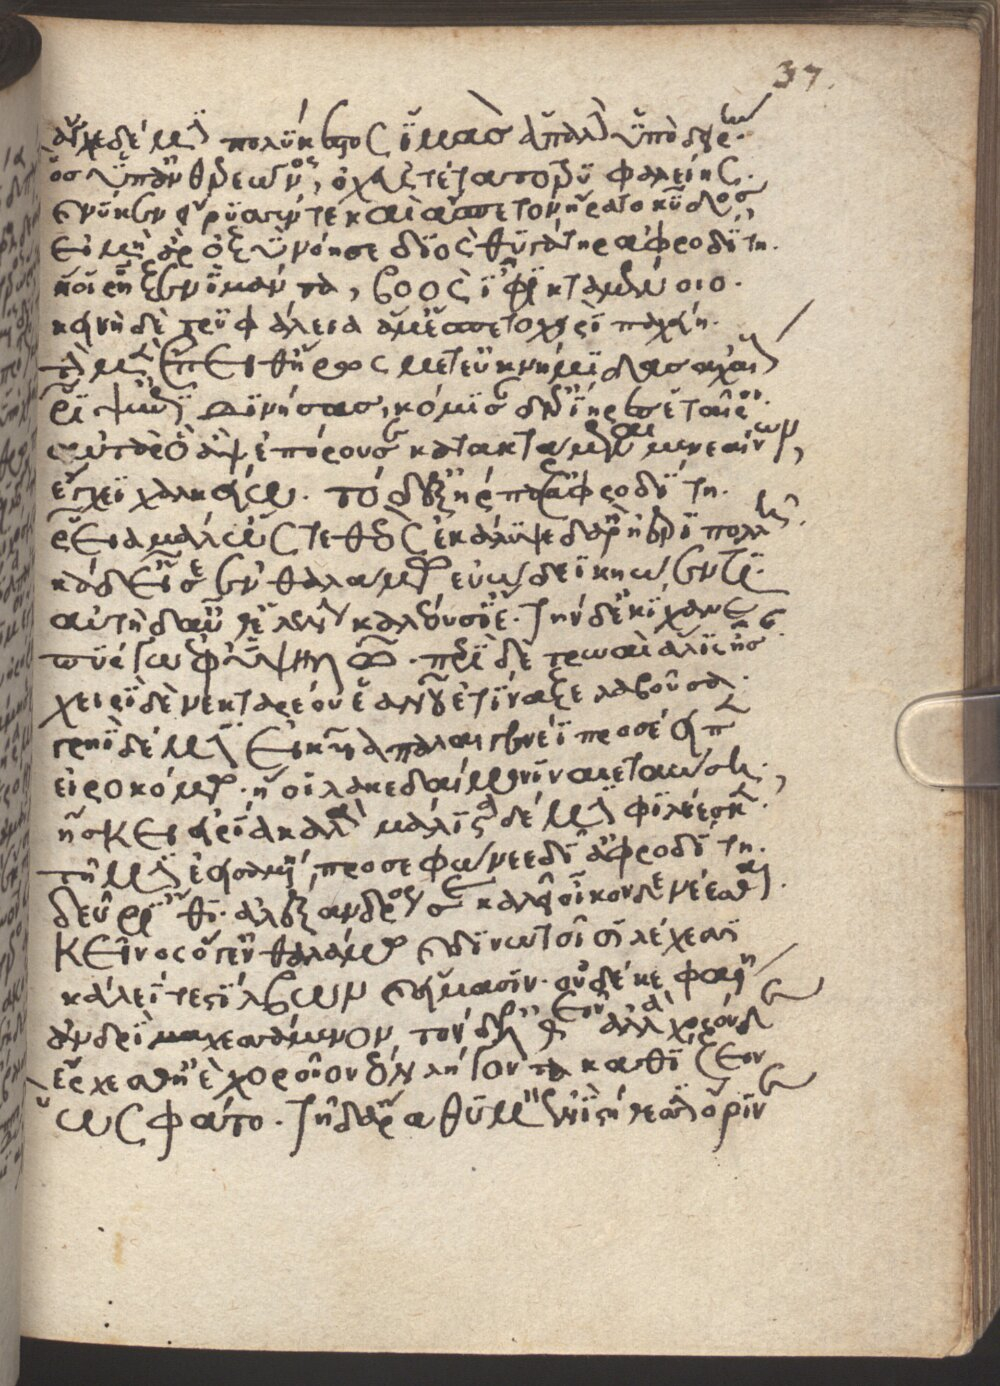 37.
ἄγχε δέ μιν πολύκεστος ἱμὰς ἁπαλὴν ὑπὸ δειρὴν
ὅς οἱ ὑπ' ἀνθερεῶνος ὀχεὺς τέτατο τρυφαλείης.
καί νύ κεν εἴρυσέν τε καὶ ἄσπετον ἤρατο κῦδος
εἰ μὴ ἄρ' ὀξὺ νόησε διὸς θυγάτηρ ἀφροδίτη.
ἥ οἱ ῥῆξεν ἱμάντα, βοὸς ἶφι κταμένοιο.
κεινὴ δὲ τρυφάλεια ἅμ' ἕσπετο χειρὶ παχείῃ.
τὴν μὲν ἔπειθ' ἥρως μετ' ἐϋκνήμιδας ἀχαιοὺς
ῥῖψ' ἐπιδινήσας, κόμισαν δ' ἐρίηρες ἑταῖροι.
αὐτὰρ ὁ ἂψ ἐπόρουσε κατακτάμεναι μενεαίνων,
ἔγχεϊ χαλκείῳ. τὸν δ' ἐξήρπαξ' ἀφροδίτη.
ῥεῖα μάλ' ὥς τε θεός, ἐκάλυψε δ' ἄρ' ἠέρι πολλῇ.
κὰδ δ' εἷσ' ἐν θαλάμῳ εὐώδεϊ κηώεντι.
αὐτὴ δ' αὖ ἑλένην καλέουσ' ἴε. τὴν δ' ἐκίχανε
πύργῳ ἐφ' ὑψηλῷ. περὶ δὲ τρωαὶ ἅλις ἦσαν.
χειρὶ δὲ νεκταρέου ἑανοῦ ἐτίναξε λαβοῦσα.
γρηῒ δέ μιν εἰκυῖα παλαιγενέϊ προσέειπεν
εἰροκόμῳ. ἥ οἱ λακεδαίμονι ναιεταώσῃ,
ἤσκειν εἴρια καλά. μάλιστα δέ μιν φιλέεσκε.
τῇ μιν ἐεισαμένη, προσεφώνεε δῖ' ἀφροδίτη.
δεῦρ' ἴθι. ἀλέξανδρός σε καλεῖ οἶκον δὲ νέεσθαι.
κεῖνος ὅ γ' ἐν θαλάμῳ καὶ δινωτοῖσι λέχεσσι
κάλλεΐ τε στίλβων καὶ εἵμασιν. οὐδέ κε φαίης
ἀνδρὶ μαχεσσάμενον, τόν γ' ἐλθεῖν ἀλλὰ χορόνδε
ἔρχεσθ' ἠὲ χοροῖο νέον λήγοντα καθίζειν
ὣς φάτο. τῇ δ' ἄρα θυμὸν ἐνὶ στήθεσσιν ὄρινεν